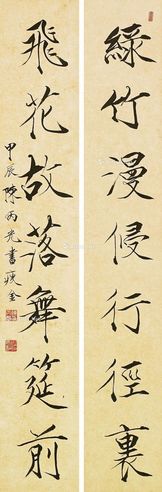 綠竹漫侵行徑裏
飛花故落舞筵前
甲辰陳丙光書瘦金